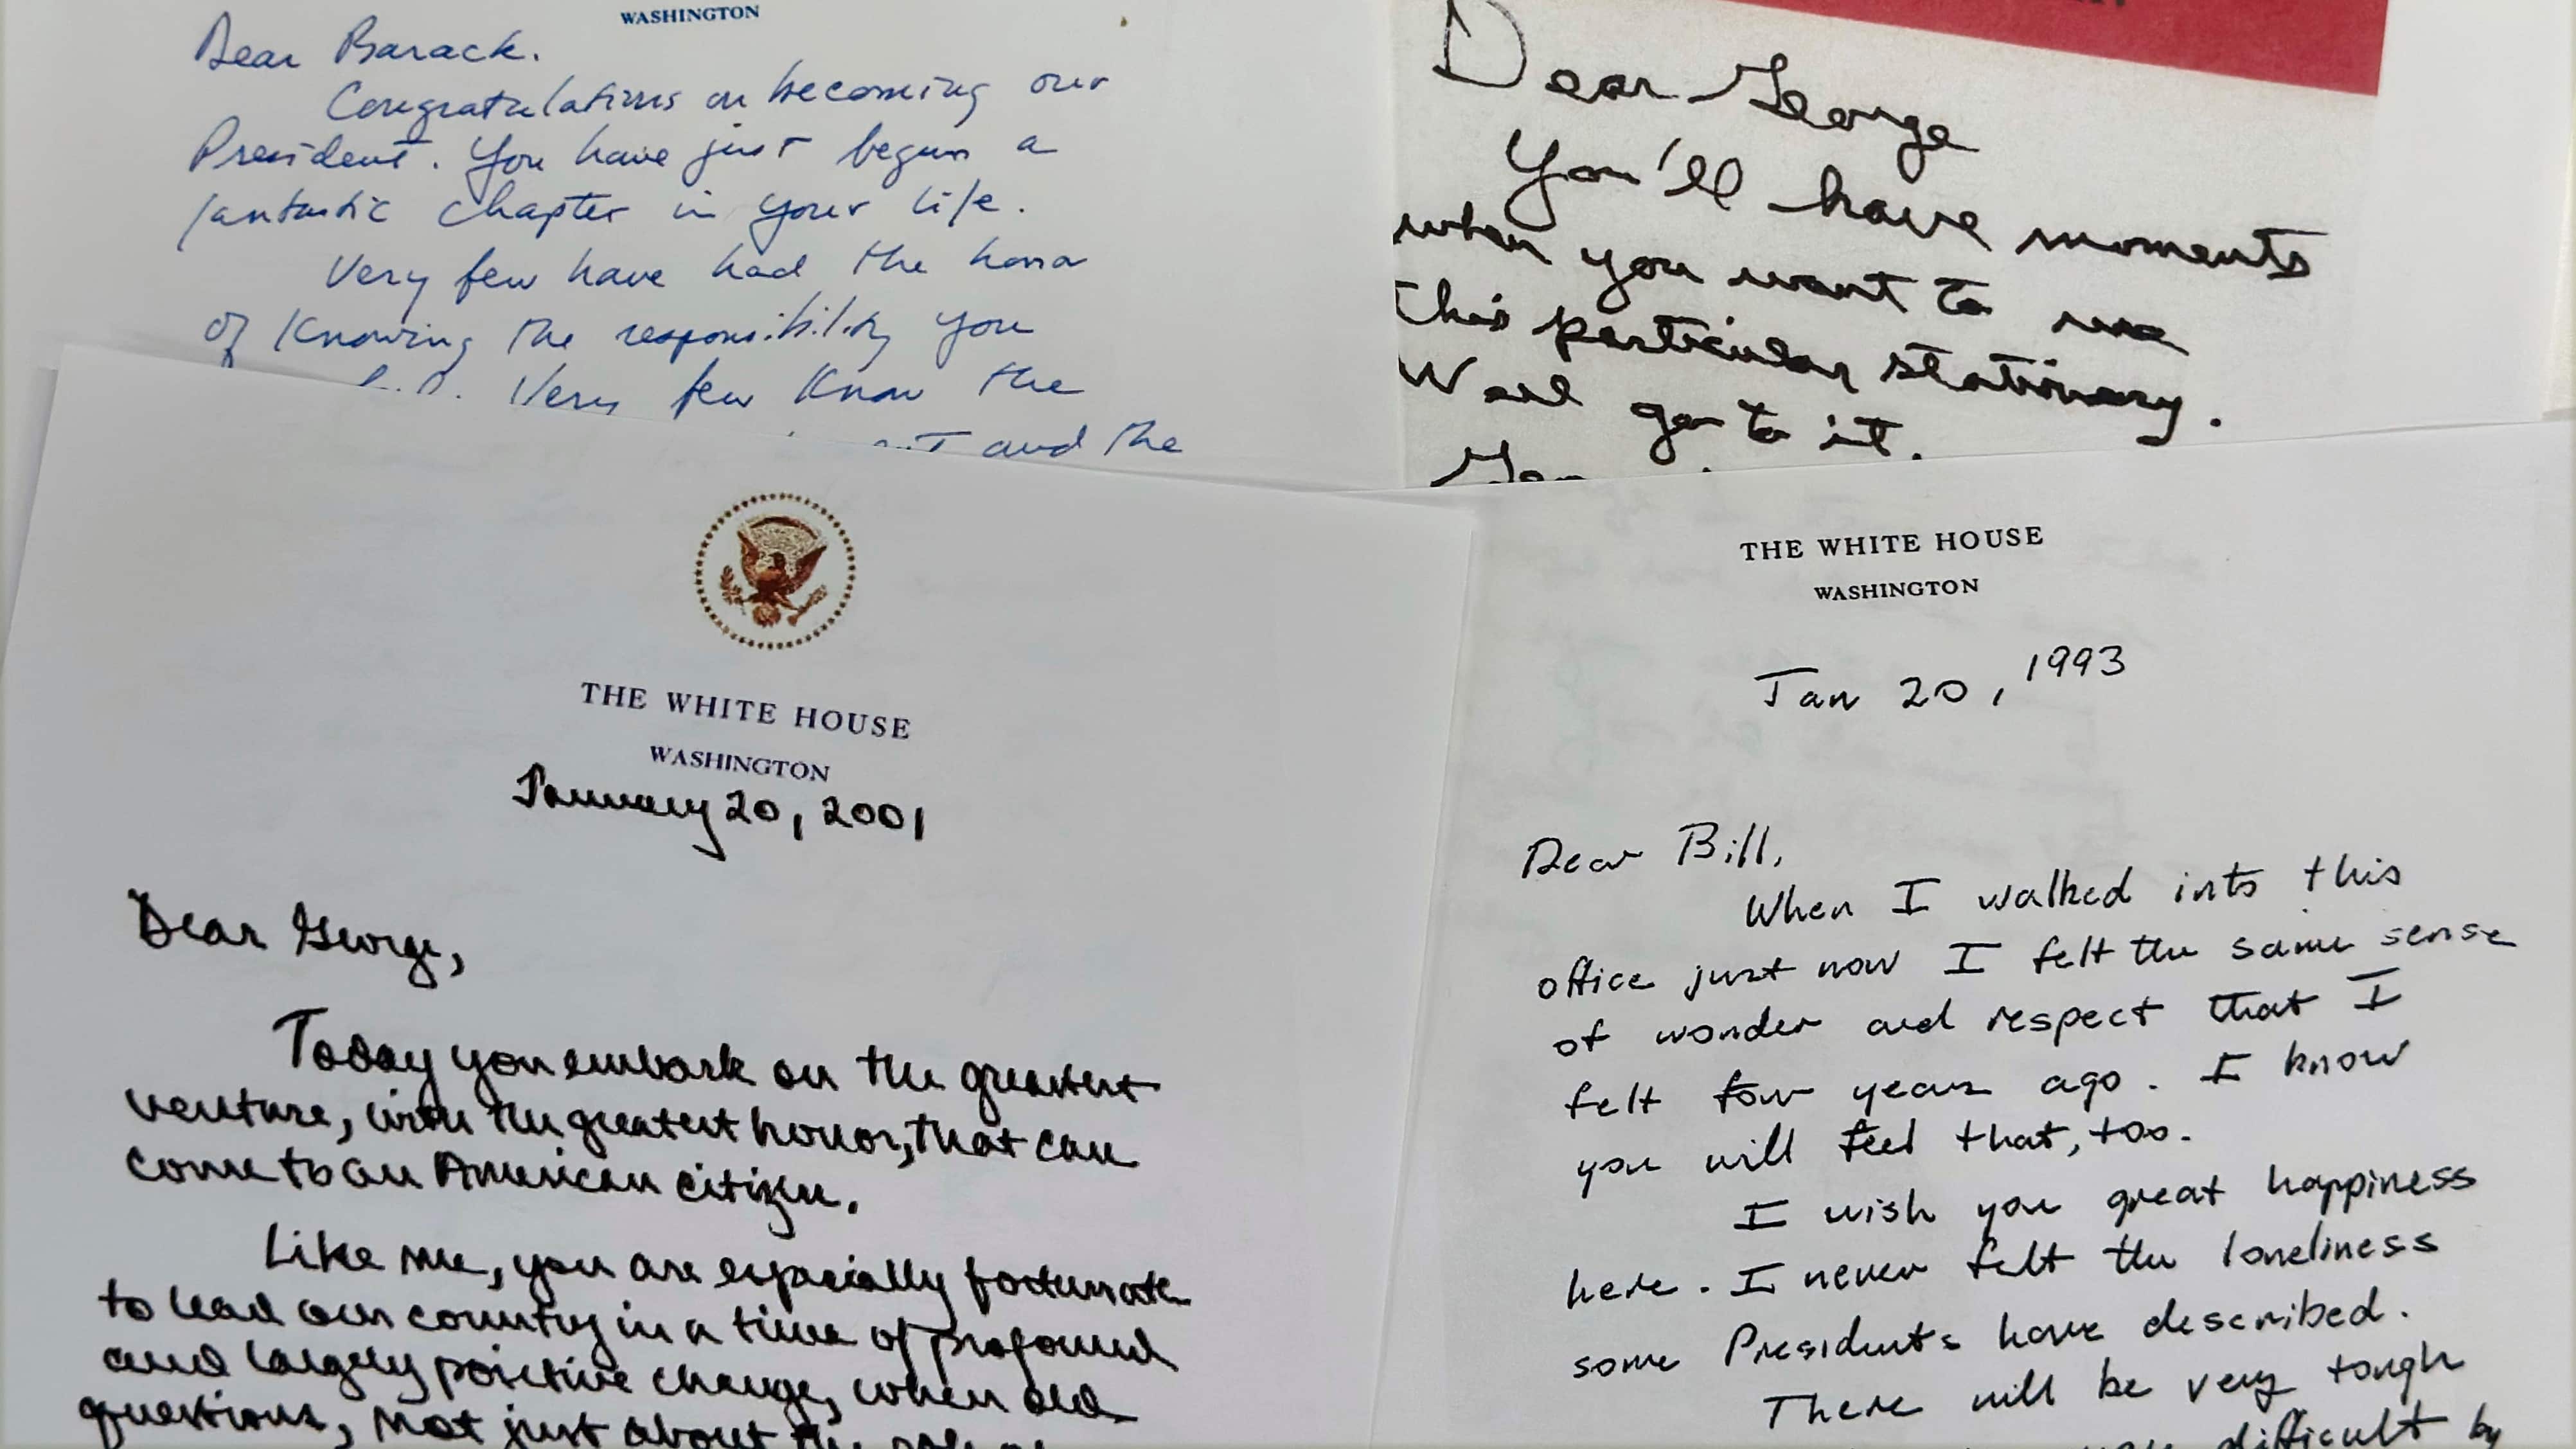 WASHINGTON
Dear Barack.
Congratulations on becoming our
President. You have just begun a
fantastic chapter in your life.
Very few have had the honor
of Knowing the responsibility you
Very few know the
and the
Dear George
You'll have moments
when you want to use
this particular stationary.
Well go to it.
THE WHITE HOUSE
WASHINGTON
January 20, 2001
Dear George,
Today you embark on the greatest
venture, with the greatest honor, that can
come to an American citizen.
Like me, you are especially fortunate
to lead our country in a time of profound
and largely positive change, when old
questions, not just about the role of
THE WHITE HOUSE
WASHINGTON
Jan 20, 1993
Dear Bill,
When I walked into this
office just now I felt the same sense
of wonder and respect that I
felt four years ago. I know
you will feel that, too.
I wish you great happiness
here. I never felt the loneliness
some Presidents have described.
There will be very tough
difficult by